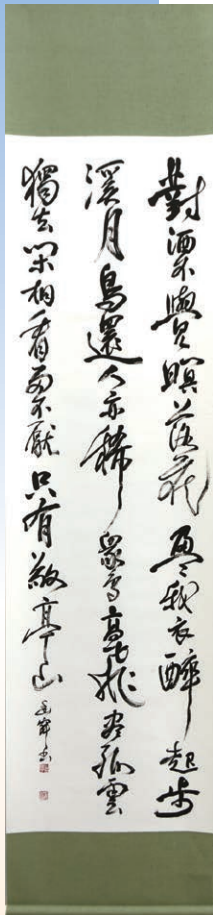 對酒不覺暝落花盈我衣醉起步
溪月鳥還人亦稀眾鳥高飛盡孤雲
獨去閑相看兩不厭只有敬亭山